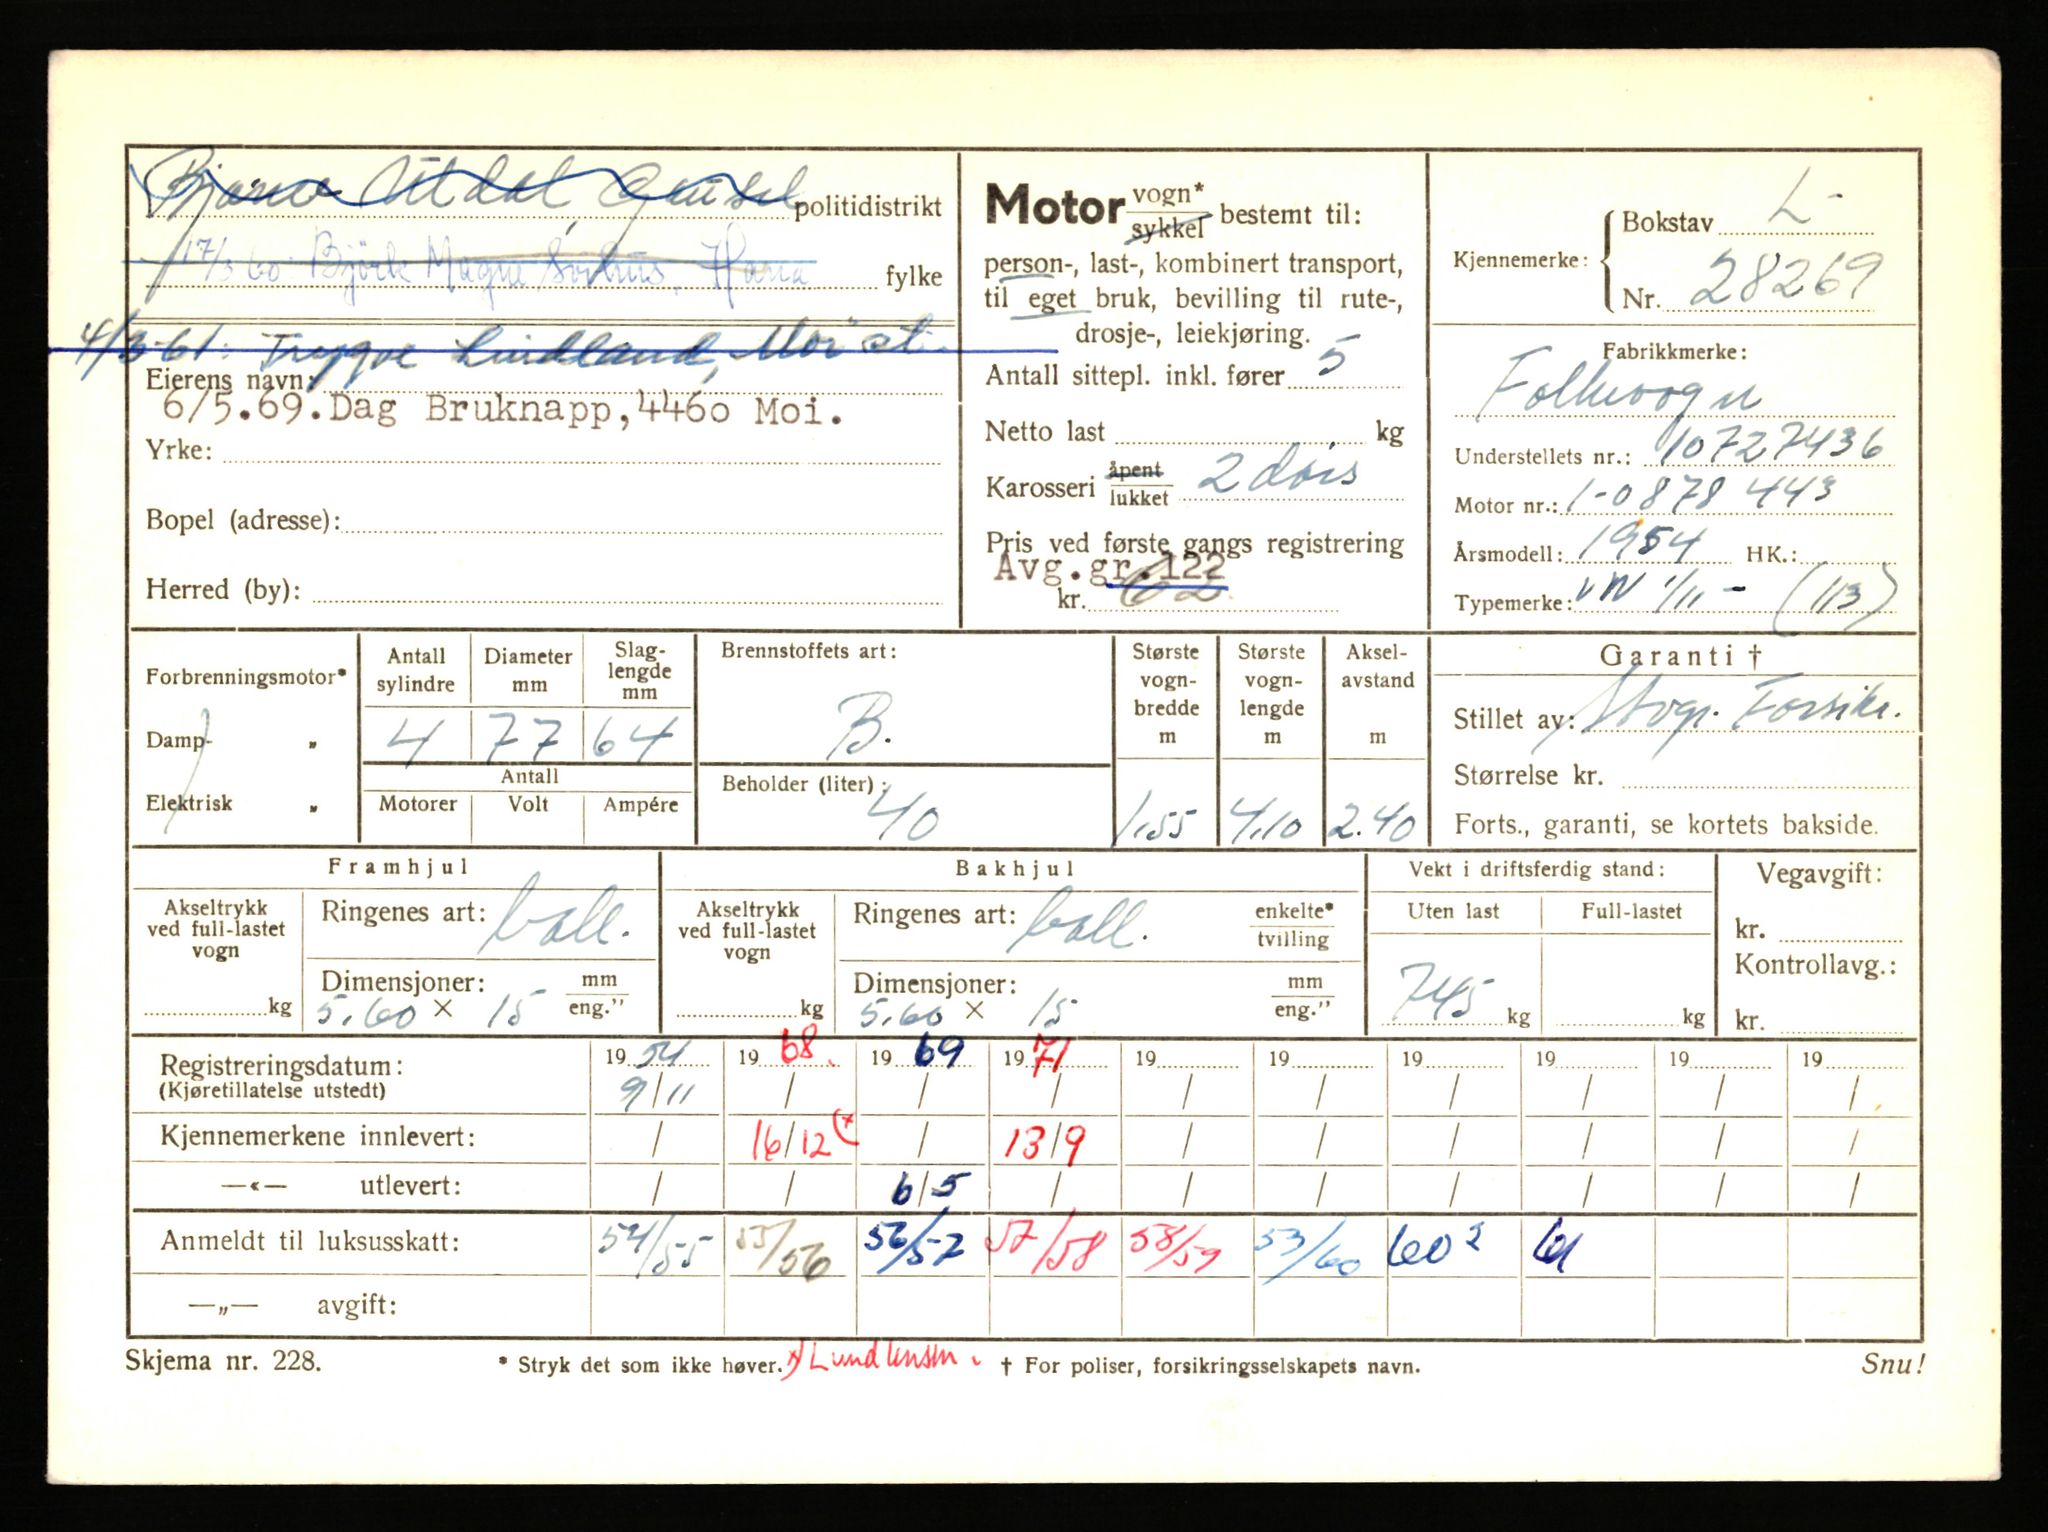 politidistrikt
17/3 60 Magne Hana
fylke
4/3-61: Trygve Lindland, Moi st.
Eierens navn:
6/5.69.Dag Bruknapp,4460 Moi.
Yrke:
Bopel (adresse):
Herred (by):
Motor vogn* sykkel bestemt til:
person-, last-, kombinert transport,
til eget bruk, bevilling til rute-,
drosje-, leiekjøring.
Antall sittepl. inkl. fører 5
Netto last kg
Karosseri åpent lukket 2 dørs
Pris ved første gangs registrering
Avg.gr.122
kr. 62
Kjennemerke: Bokstav L-
Nr. 28269
Fabrikkmerke:
Folkevogn
Understellets nr.: 10727436
Motor nr.: 1-0878 443
Årsmodell: 1954 HK.:
Typemerke: VW 1/11 - (113)
Forbrenningsmotor*
Damp- „
Elektrisk „
Antall sylindre Diameter mm Slag-lengde mm
4 77 64
Antall
Motorer Volt Ampére
Brennstoffets art:
B.
Beholder (liter):
40
Største vogn-bredde m
1.55
Største vogn-lengde m
4.10
Aksel-avstand m
2.40
Garanti †
Stillet av: Forsikr.
Størrelse kr.
Forts., garanti, se kortets bakside.
Framhjul
Akseltrykk ved full-lastet vogn
kg
Ringenes art: ball.
Dimensjoner: mm
5.60 × 15 eng."
Bakhjul
Akseltrykk ved full-lastet vogn
kg
Ringenes art: ball. enkelte* tvilling
Dimensjoner: mm
5.60 × 15 eng."
Vekt i driftsferdig stand:
Uten last Full-lastet
745 kg kg
Vegavgift:
kr.
Kontrollavg.:
kr.
Registreringsdatum: 19 54 19 68. 19 69 19 71 19 19 19 19 19 19
(Kjøretillatelse utstedt) 9/11 / / / / / / / / /
Kjennemerkene innlevert: / 16/12 (x / 13/9 / / / / / /
—«— utlevert: / / 6/5 / / / / / / /
Anmeldt til luksusskatt: 54/55 55/56 56/57 57/58 58/59 53/60 60² 61
—„— avgift:
Skjema nr. 228. * Stryk det som ikke høver. x) † For poliser, forsikringsselskapets navn. Snu!